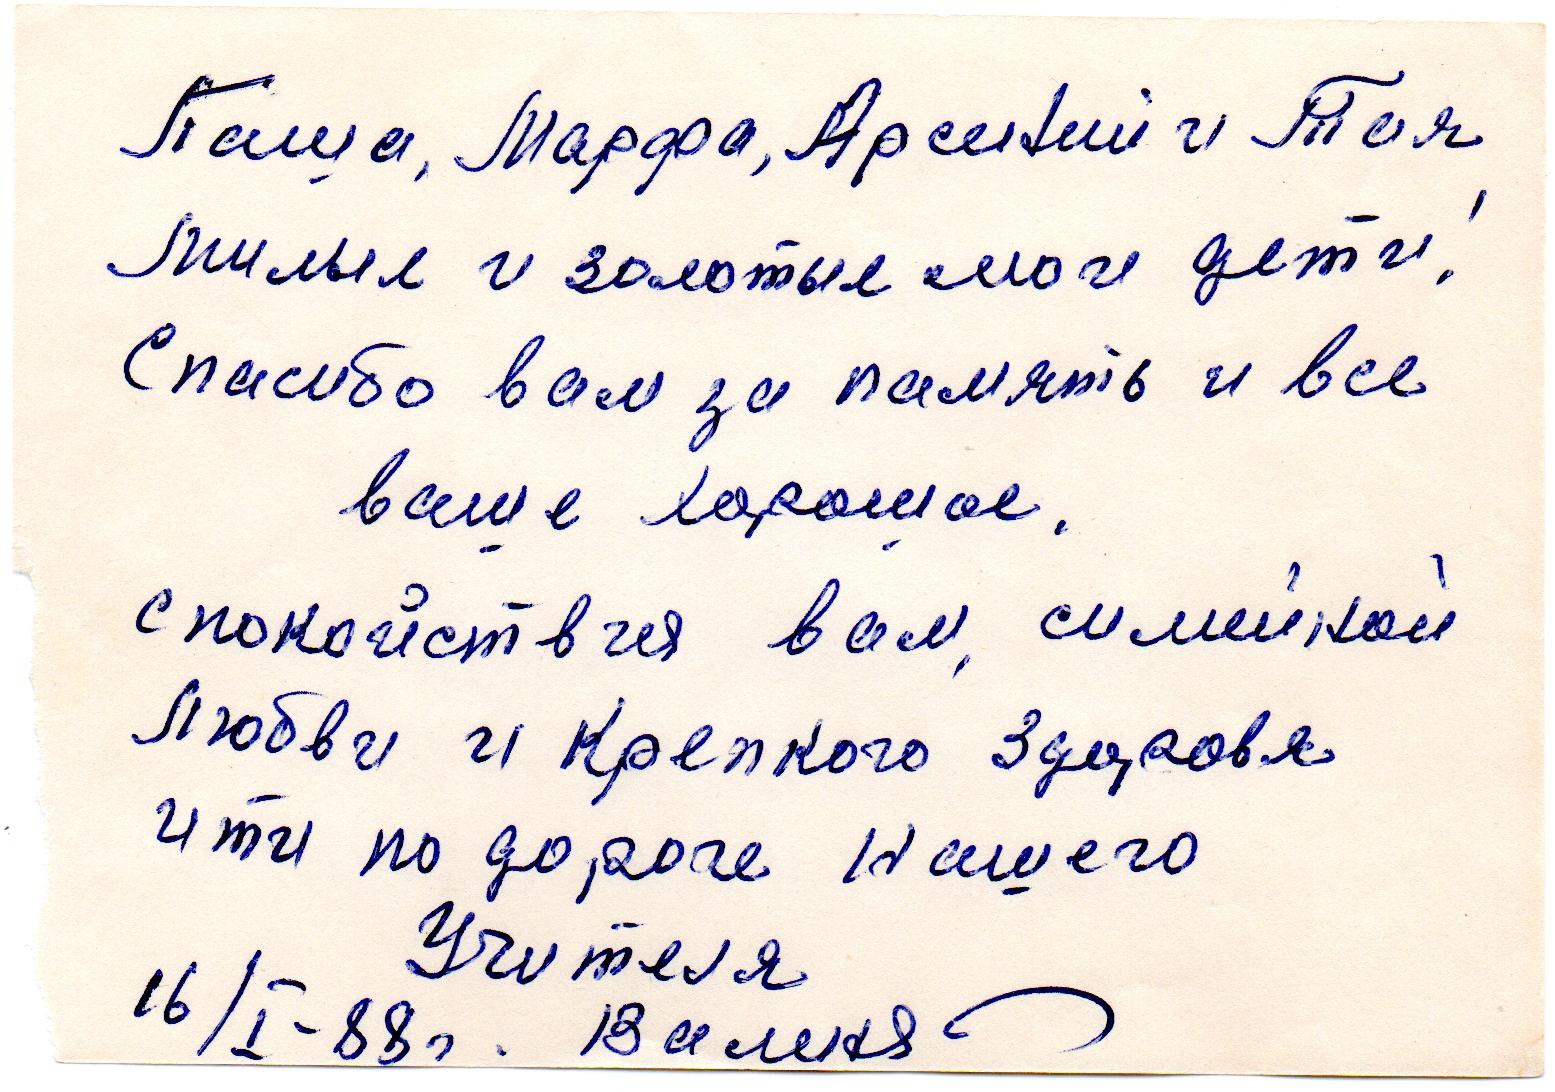 Паша, Марфа, Арсений и Тая
Милые и золотые мои дети!
Спасибо вам за память и все
ваше хорошое.
Спокойствия вам, симейной
Любви и Крепкого Здоровя
ити по дороге Нашего
Учителя
16/I-88г. Валеня